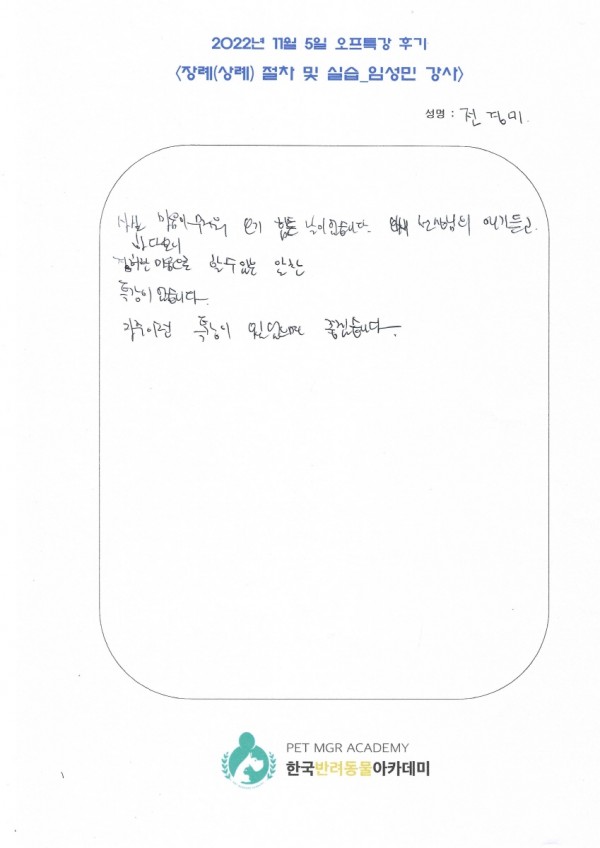 2022년 11월 5일 오프특강 후기
<장례(상례) 절차 및 실습_임성민 강사>
성명 : 전경미
사실 마음이 무거워 오기 힘든 날이었습니다. 선생님의 얘기듣고
보니
마음으로 할 수 있는 알찬
특강이었습니다.
자주 이런 특강이 있었으면 좋겠습니다.
PET MGR ACADEMY
한국반려동물아카데미